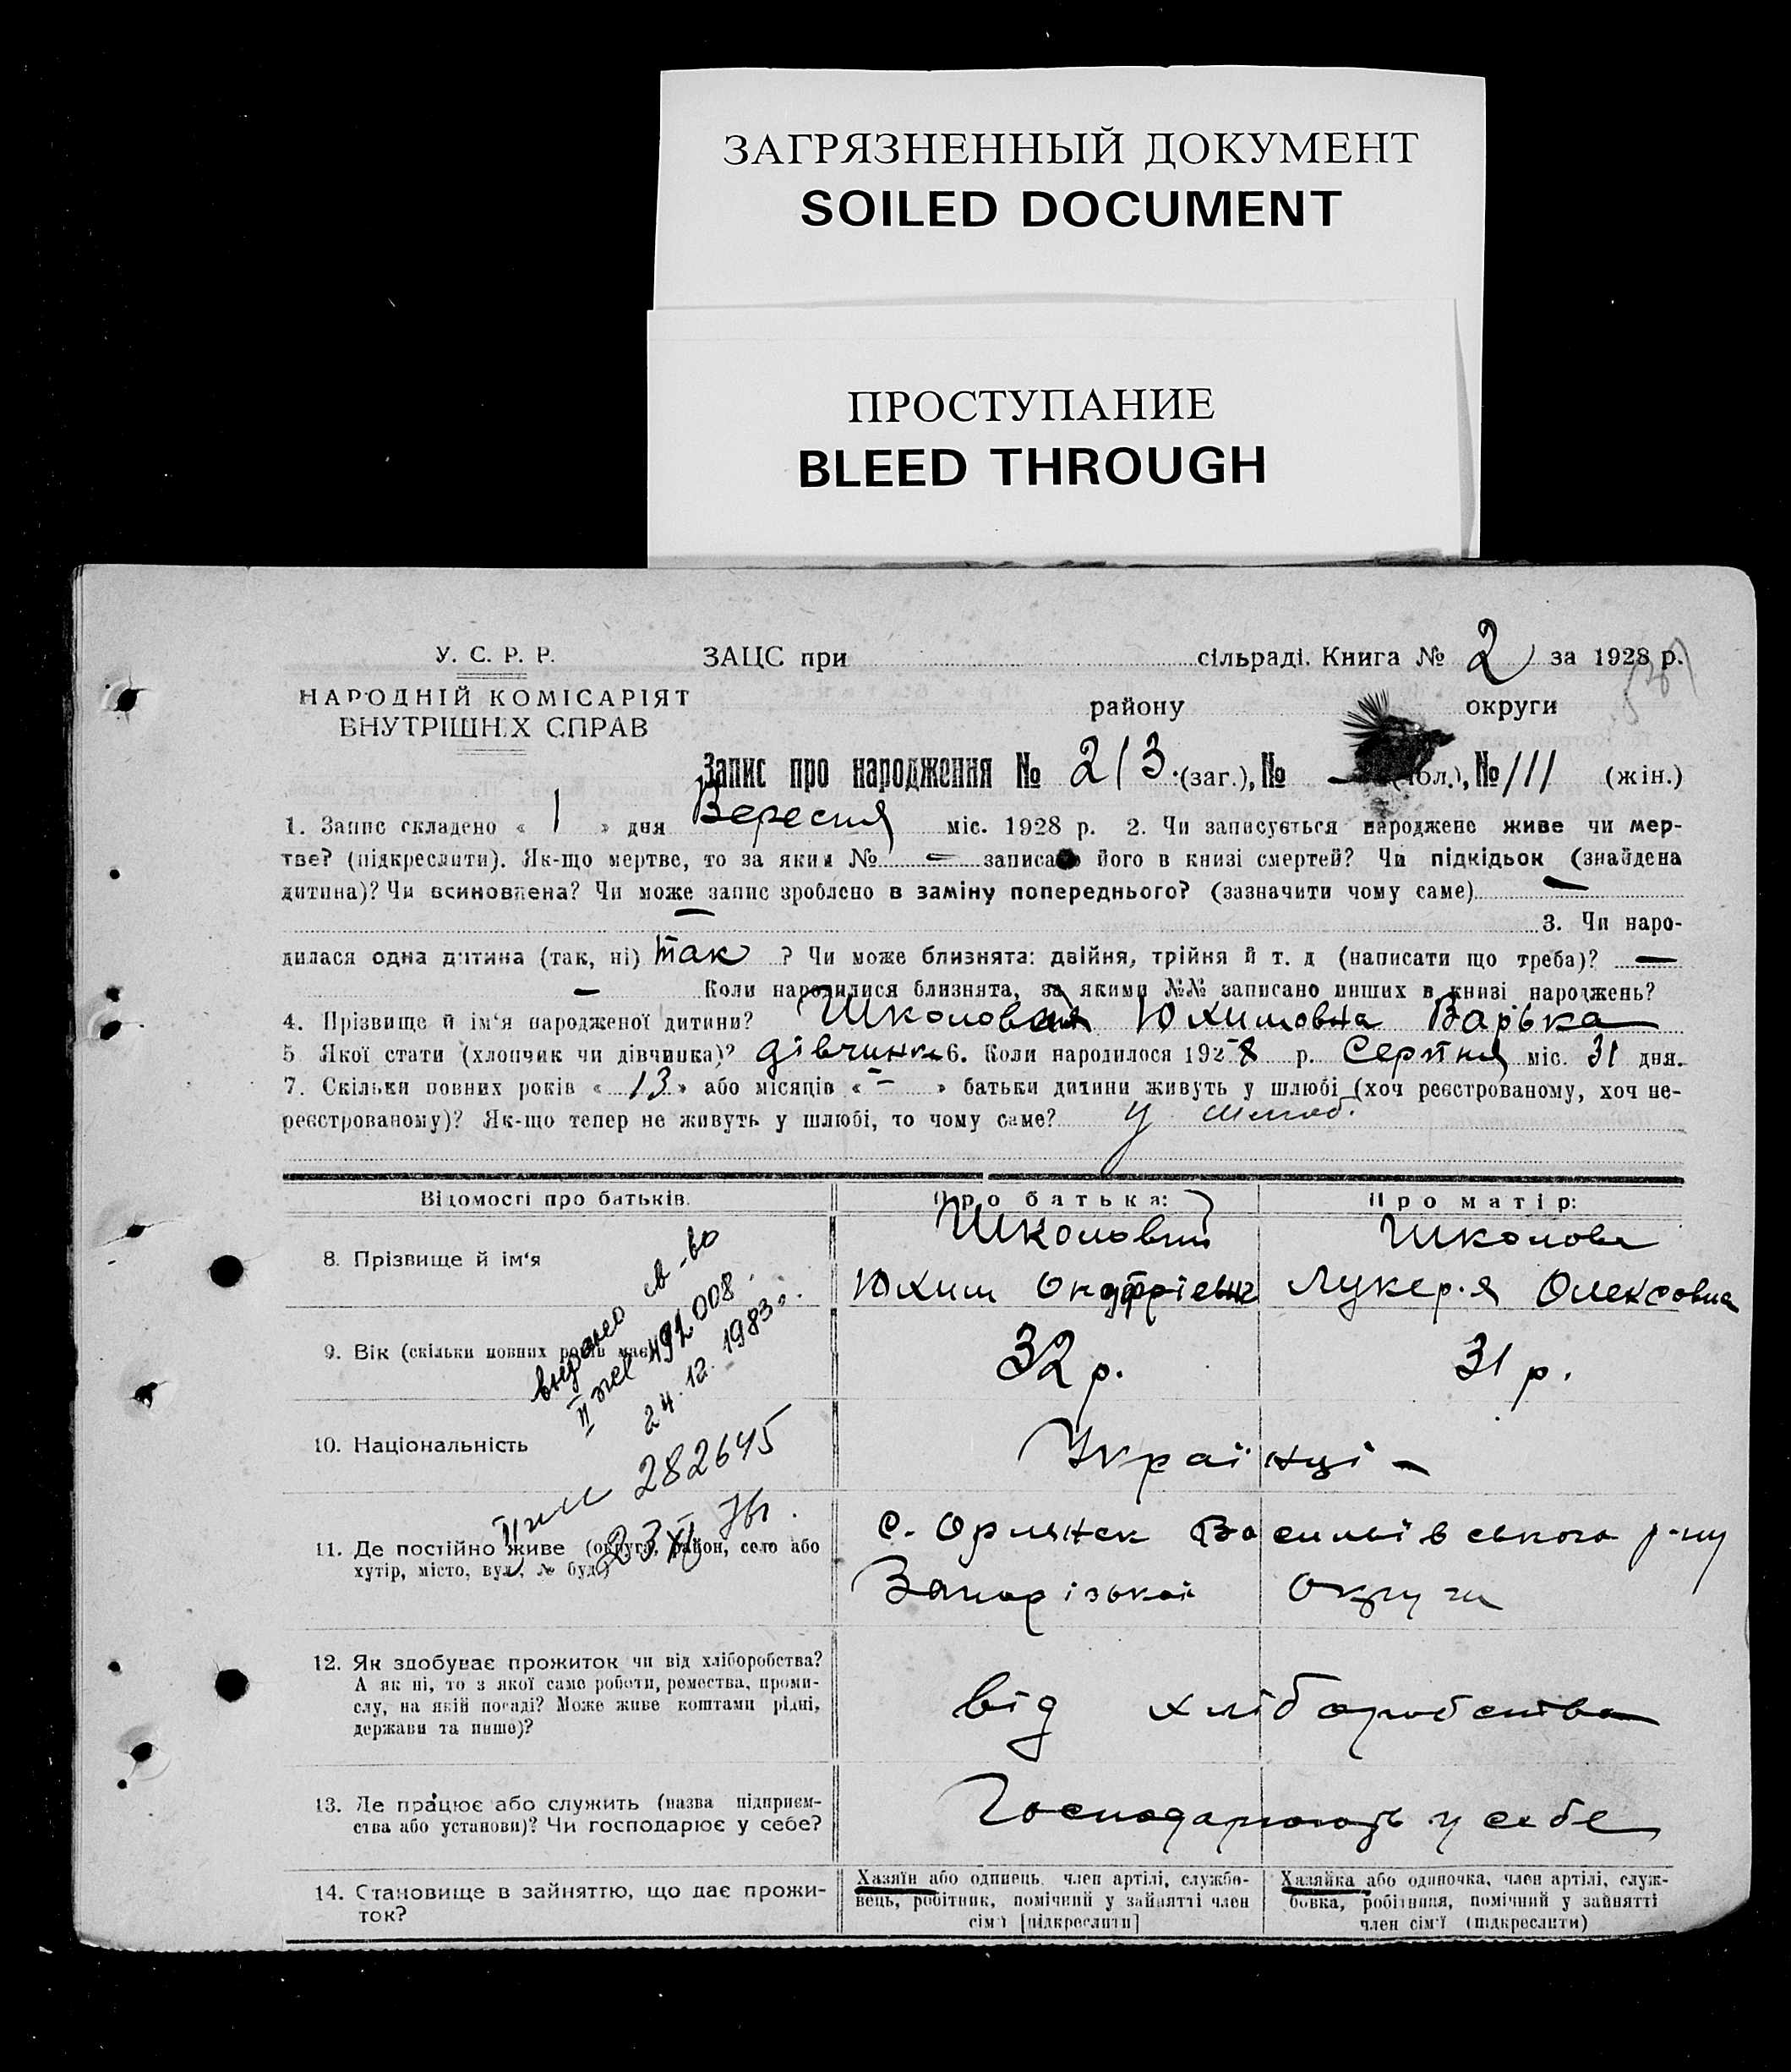 ЗАГРЯЗНЕННЫЙ ДОКУМЕНТ
SOILED DOCUMENT
ПРОСТУПАНИЕ
BLEED THROUGH
У. С. Р. Р.
НАРОДНІЙ КОМІСАРІЯТ
ВНУТРІШНІХ СПРАВ
ЗАЦС при сільраді. Книга № 2 за 1928 р.
району округи
Запис про народження № 213 (заг.), № — (чол.), № 111 (жін.)
1. Запис складено « 1 » дня Вересня міс. 1928 р. 2. Чи записується народжене живе чи мер-
тве? (підкреслити). Як-що мертве, то за яким № — записано його в книзі смертей? Чи підкідьок (знайдена
дитина)? Чи всиновлена? Чи може запис зроблено в заміну попереднього? (зазначити чому саме) —
— 3. Чи наро-
дилася одна дитина (так, ні) так ? Чи може близнята: двійня, трійня й т. д (написати що треба)? —
— Коли народилися близнята, за якими №№ записано инших в книзі народжень?
4. Прізвище й ім'я народженої дитини? Юхимовна Варька
5 Якої стати (хлопчик чи дівчинка)? дівчинка 6. Коли народилося 1928 р. Серпня міс. 31 дня.
7. Скільки повних років « 13 » або місяців « — » батьки дитини живуть у шлюбі (хоч реєстрованому, хоч не-
реєстрованому)? Як-що тепер не живуть у шлюбі, то чому саме? у шлюб.
Відомості про батьків. Про батька: Про матір:
8. Прізвище й ім'я
Школовий Школова
Юхим Лукер.я Олексовна
видано св-во
II жс 491008
24.12.1983 г.
9. Вік (скільки повних років має) 32 р. 31 р.
10. Національність Українці —
282645
23 XI 76г.
11. Де постійно живе (округа, район, село або
хутір, місто, вул., № буд.)
с. Орлянск Васильівського р-ну
Запорізької Округи
12. Як здобуває прожиток чи від хліборобства?
А як ні, то з якої саме роботи, ремества, проми-
слу, на якій посаді? Може живе коштами рідні,
держави та инше)?
від хліборобства
13. Де працює або служить (назва підприєм-
ства або установи)? Чи господарює у себе?
Господарюють у себе
14. Становище в зайняттю, що дає прожи-
ток?
Хазяїн або одинець, член артілі, службо-
вець, робітник, помічний у зайнятті член
сім'ї [підкреслити]
Хазяйка або одиночка, член артілі, служ-
бовка, робітниця, помічний у зайнятті
член сім'ї (підкреслити)